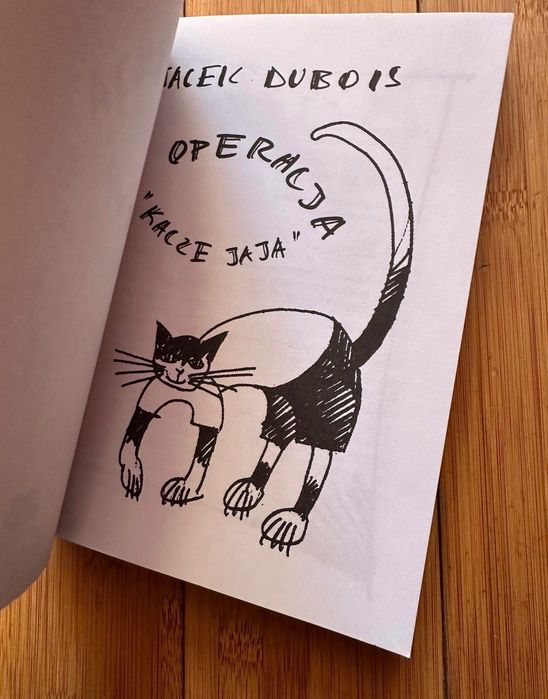 JACEK DUBOIS
OPERACJA
"KACZE JAJA"